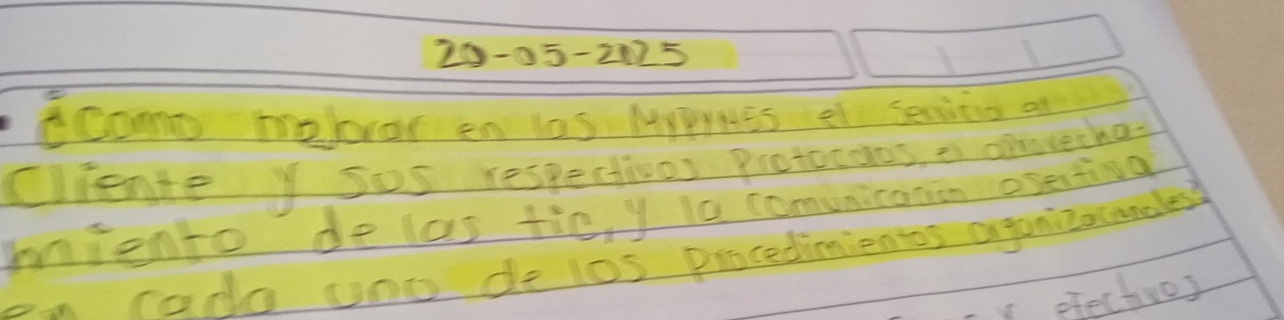 20-05-2025
¿Como mejorar en las MYPYMES el servicio al
Cliente y sus respectivos Protocolos, el aprovecha-
miento de las tic, y la comunicación asertiva
en cada uno de los procedimientos organizacionales?
y efectivos